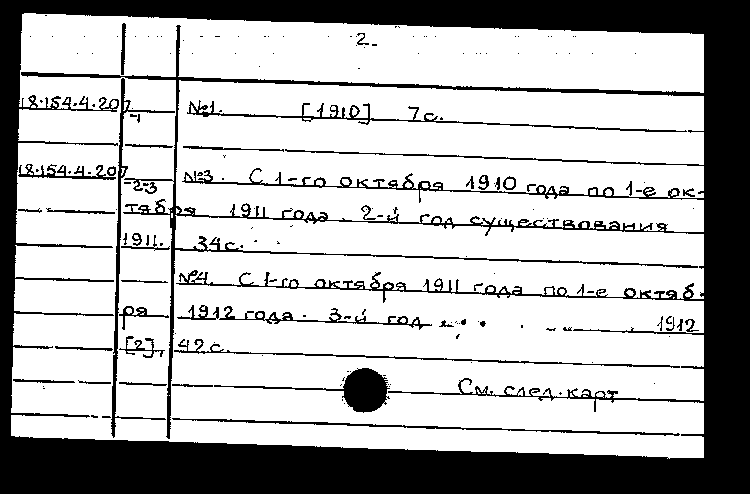 2.
18.154.4.207
-1
№1. [1910] 7 с.
18.154.4.207
-2-3
№3. С 1-го октября 1910 года по 1-е ок-
тября 1911 года. 2-й год существования
1911. 34 с.
№4. С 1-го октября 1911 года по 1-е октяб-
ря 1912 года. 3-й год 1912
[2], 42 с.
См. след. карт